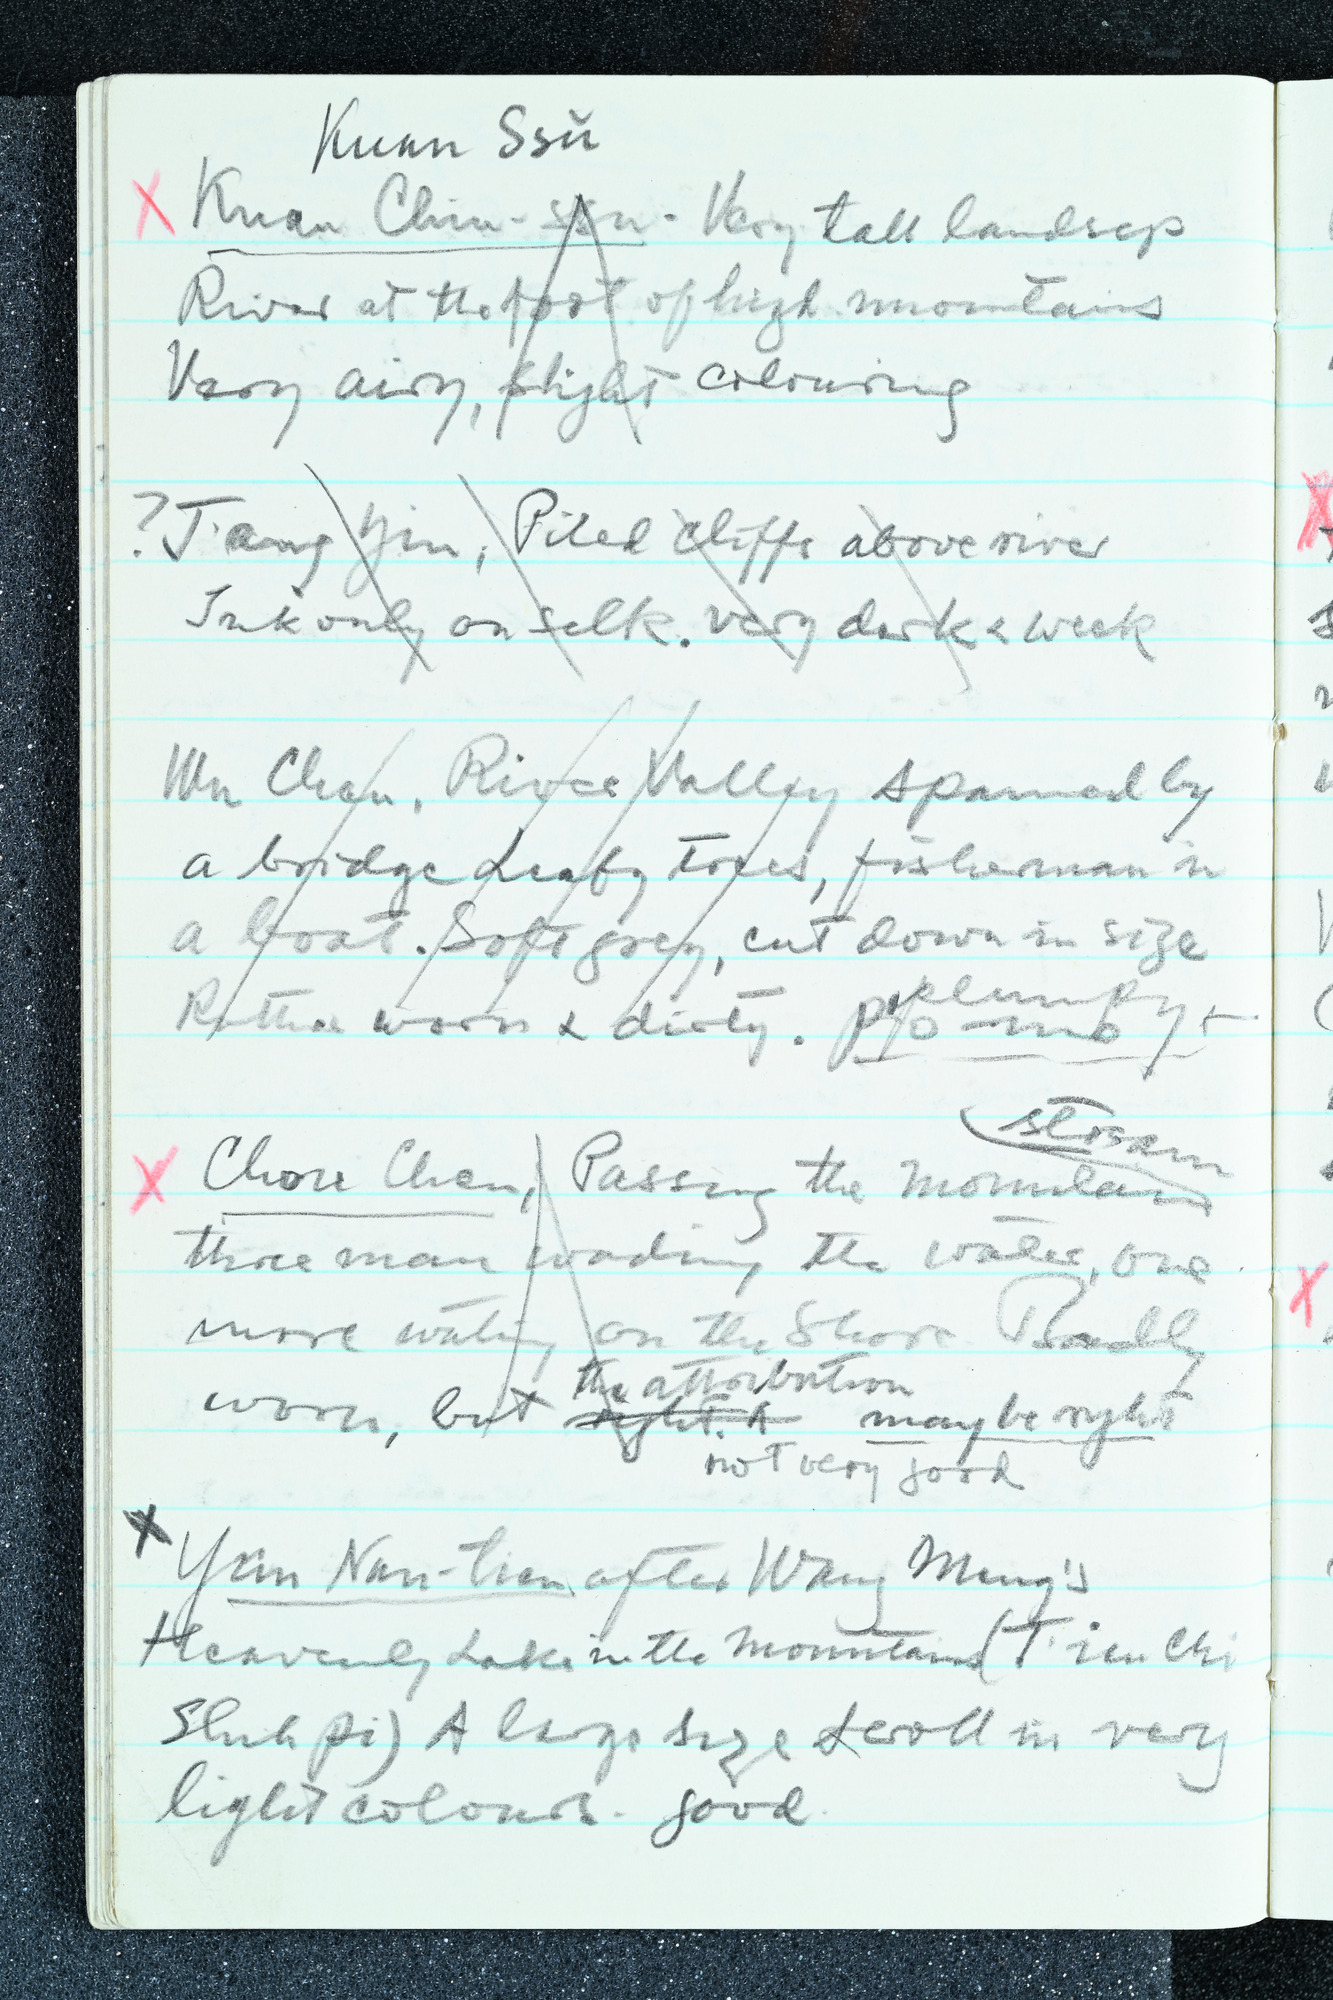 Kuan Ssŭ
X Kuan Chin-ssu - Very tall landscp
River at the foot of high mountains
Very airy, slight colouring
? T'ang Yin, Piled cliffs above river
Ink only on silk. very dark & weak
Wu Chen, River Valley spanned by
a bridge Leafy trees, fisherman in
a boat. Soft grey, cut down in size
Rather worn & dirty. p'o-mo
X Chou Chen, Passing the mountain stream
three man wading the water, one
more waiting on the Shore Badly
worn, but the attribution may be right
not very good
X Yün Nan-tien after Wang Meng's
Heavenly Lake in the Mountains (T'ien Chi
Shih pi) A large size scroll in very
light colours. good